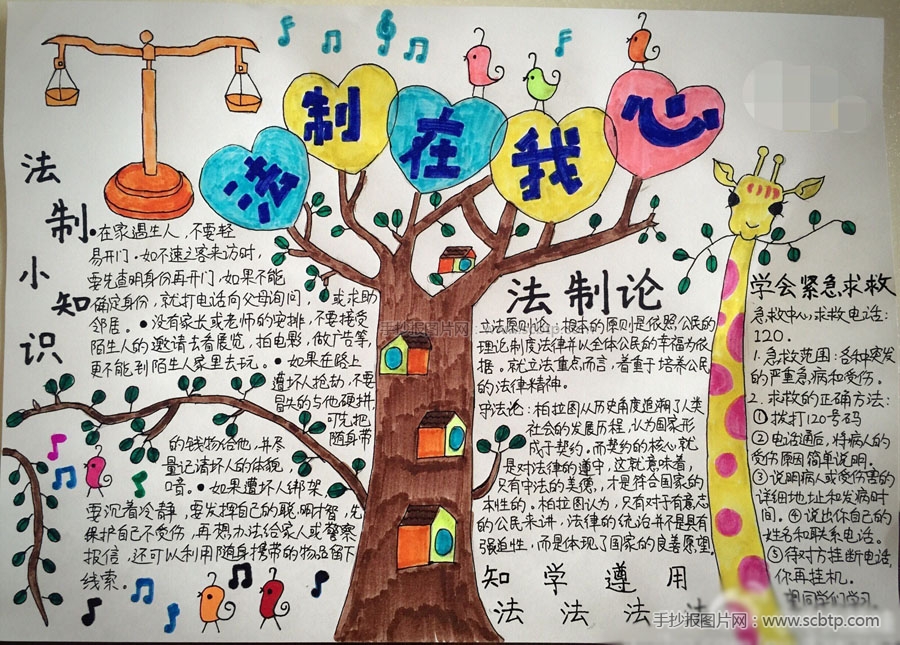 法制在我心
法制小知识
●在家遇生人,不要轻
易开门.如不速之客来访时,
要先查明身份再开门,如果不能
确定身份,就打电话向父母询问,或求助
邻居。●没有家长或老师的安排,不要接受
陌生人的邀请去看展览,拍电影,做广告等,
更不能到陌生人家里去玩。●如果在路上
遭坏人抢劫,不要
冒失的与他硬拼,
可先把
随身带
的钱物给他,并尽
量记清坏人的体貌,
●如果遭坏人绑架,
要沉着冷静,要发挥自己的聪明才智,先
保护自己不受伤,再想办法给家人或警察
报信,还可以利用随身携带的物品留下
线索.
法制论
立法原则论:根本的原则是依照公民的
理论制度法律并以全体公民的幸福为依
据。就立法重点而言,着重于培养公民
的法律精神。
守法论:柏拉图从历史角度追溯了人类
社会的发展历程,认为国家形
成于契约。而契约的核心就
是对法律的遵守,这就意味着,
只有守法的美德,才是符合国家的
本性的。柏拉图认为,只有对于有意志
的公民来讲,法律的统治并不是具有
强迫性,而是体现了国家的良善愿望.
知学遵用
法法法法
学会紧急求救
急救中心求救电话:
120.
1.急救范围:各种突发
的严重急病和受伤。
2.求救的正确方法:
①拨打120号码
②电话通后,将病人的
受伤原因简单说明。
③说明病人或受伤害的
详细地址和发病时
间。④说出你自己的
姓名和联系电话。
⑤待对方挂断电话,
你再挂机.
同学们学习
手抄报图片网 www.scbtp.com
手抄报图片网:www.scbtp.com